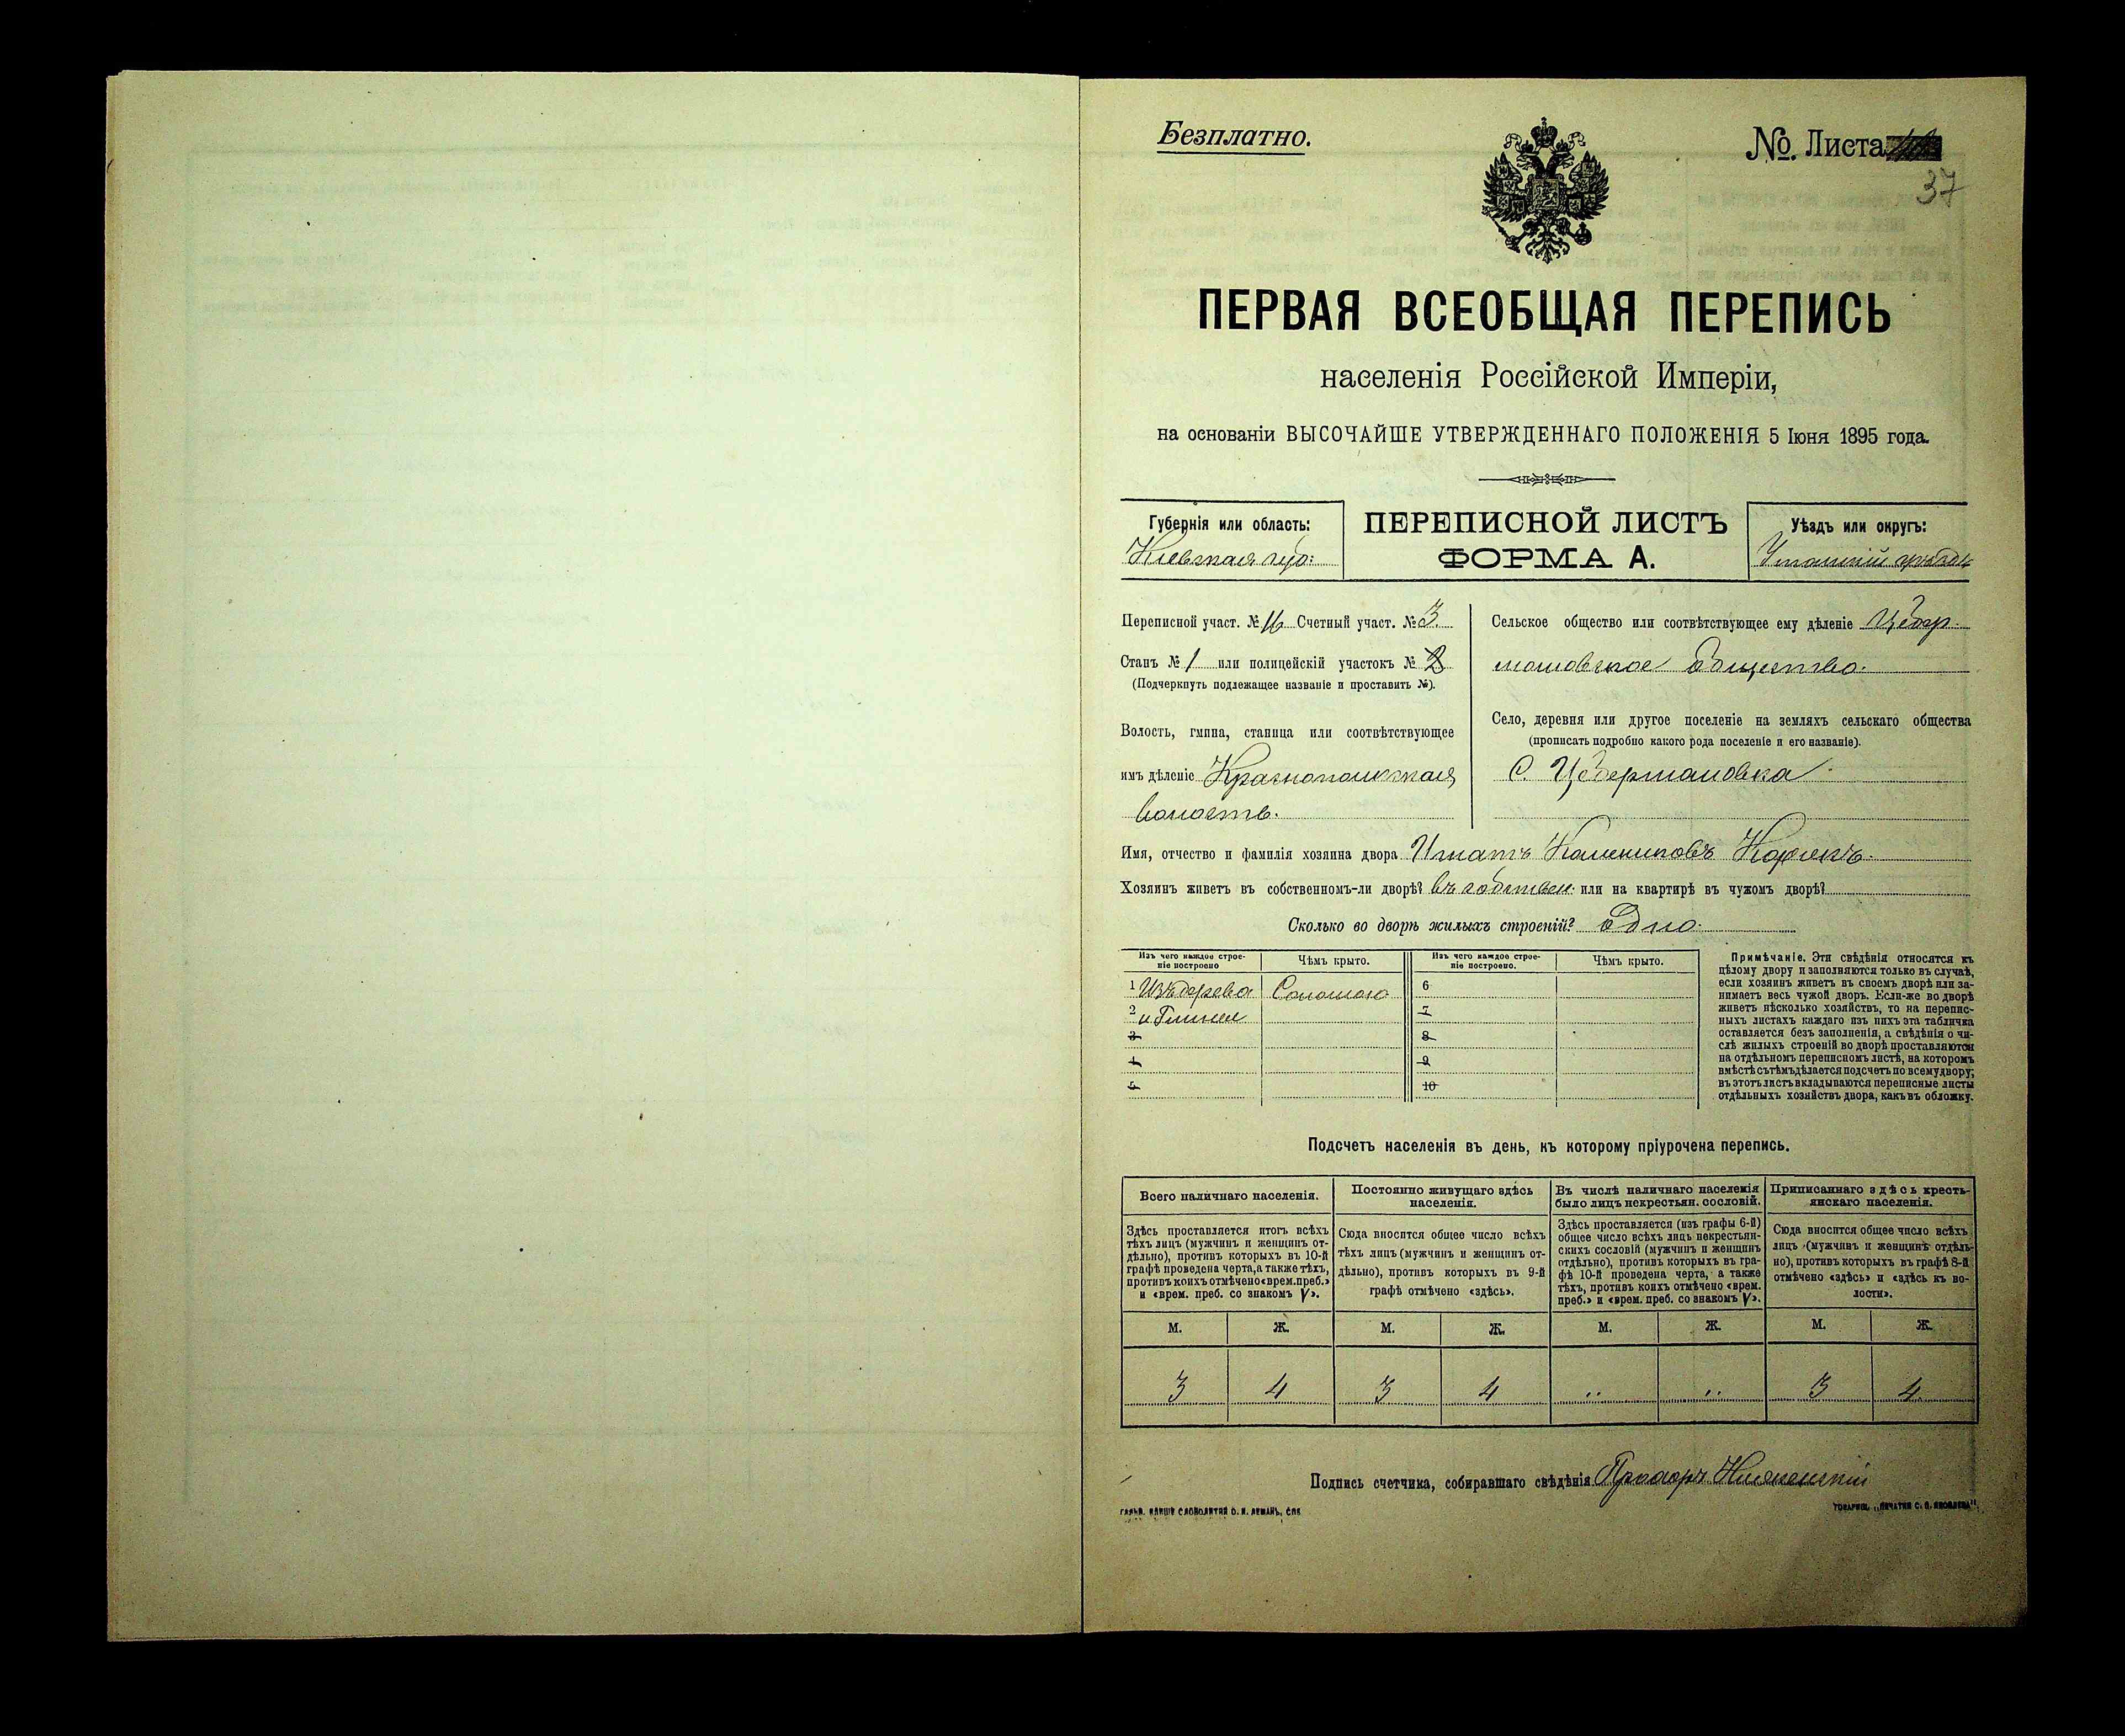 Безплатно.
№. Листа
37
ПЕРВАЯ ВСЕОБЩАЯ ПЕРЕПИСЬ
населенія Россійской Имперіи,
на основаніи ВЫСОЧАЙШЕ УТВЕРЖДЕННАГО ПОЛОЖЕНІЯ 5 Іюня 1895 года.
Губернія или область:
Кіевская губ:
ПЕРЕПИСНОЙ ЛИСТЪ
ФОРМА А.
Уѣздъ или округъ:
Уманскій уѣздъ
Переписной участ. № 16 Счетный участ. № 3.
Станъ № 1 или полицейскій участокъ №
(Подчеркнуть подлежащее названіе и проставить №).
Волость, гмина, станица или соотвѣтствующее
имъ дѣленіе Краснопольская
волость.
Сельское общество или соотвѣтствующее ему дѣленіе Цебер-
мановское общество.
Село, деревня или другое поселеніе на земляхъ сельскаго общества
(прописать подробно какого рода поселеніе и его названіе).
С. Цебермановка
Имя, отчество и фамилія хозяина двора Игнатъ Калениковъ
Хозяинъ живетъ въ собственномъ-ли дворѣ? въ собствен. или на квартирѣ въ чужомъ дворѣ?
Сколько во дворѣ жилыхъ строеній? Одно.
Изъ чего каждое строе-
ніе построено
Чѣмъ крыто.
Изъ чего каждое строе-
ніе построено.
Чѣмъ крыто.
1 Изъ дерева Соломою
2 и Глины
3
4
5
6
7
8
9
10
Примѣчаніе. Эти свѣдѣнія относятся къ
цѣлому двору и заполняются только въ случаѣ,
если хозяинъ живетъ въ своемъ дворѣ или за-
нимаетъ весь чужой дворъ. Если-же во дворѣ
живетъ нѣсколько хозяйствъ, то на перепис-
ныхъ листахъ каждаго изъ нихъ эта табличка
оставляется безъ заполненія, а свѣдѣнія о чи-
слѣ жилыхъ строеній во дворѣ проставляются
на отдѣльномъ переписномъ листѣ, на которомъ
вмѣстѣ съ тѣмъ дѣлается подсчетъ по всему двору;
въ этотъ листъ вкладываются переписные листы
отдѣльныхъ хозяйствъ двора, какъ въ обложку.
Подсчетъ населенія въ день, къ которому пріурочена перепись.
Всего наличнаго населенія.
Здѣсь проставляется итогъ всѣхъ
тѣхъ лицъ (мужчинъ и женщинъ от-
дѣльно), противъ которыхъ въ 10-й
графѣ проведена черта, а также тѣхъ,
противъ коихъ отмѣчено «врем. преб.»
и «врем. преб. со знакомъ V».
Постоянно живущаго здѣсь
населенія.
Сюда вносится общее число всѣхъ
тѣхъ лицъ (мужчинъ и женщинъ от-
дѣльно), противъ которыхъ въ 9-й
графѣ отмѣчено «здѣсь».
Въ числѣ наличнаго населенія
было лицъ некрестьян. сословій.
Здѣсь проставляется (изъ графы 6-й)
общее число всѣхъ лицъ некрестьян-
скихъ сословій (мужчинъ и женщинъ
отдѣльно), противъ которыхъ въ гра-
фѣ 10-й проведена черта, а также
тѣхъ, противъ коихъ отмѣчено «врем.
преб.» и «врем. преб. со знакомъ V».
Приписаннаго здѣсь кресть-
янскаго населенія.
Сюда вносится общее число всѣхъ
лицъ (мужчинъ и женщинъ отдѣль-
но), противъ которыхъ въ графѣ 8-й
отмѣчено «здѣсь» и «здѣсь къ во-
лости».
М. Ж. М. Ж. М. Ж. М. Ж.
3 4 3 4 " " 3 4
Подпись счетчика, собиравшаго свѣдѣнія
ГАЛЬВ. КЛИШЕ СЛОВОЛИТНЯ О. И. ЛЕМАНЪ, СПБ
ТОВАРИЩ. „ПЕЧАТНЯ С. П. ЯКОВЛЕВА".